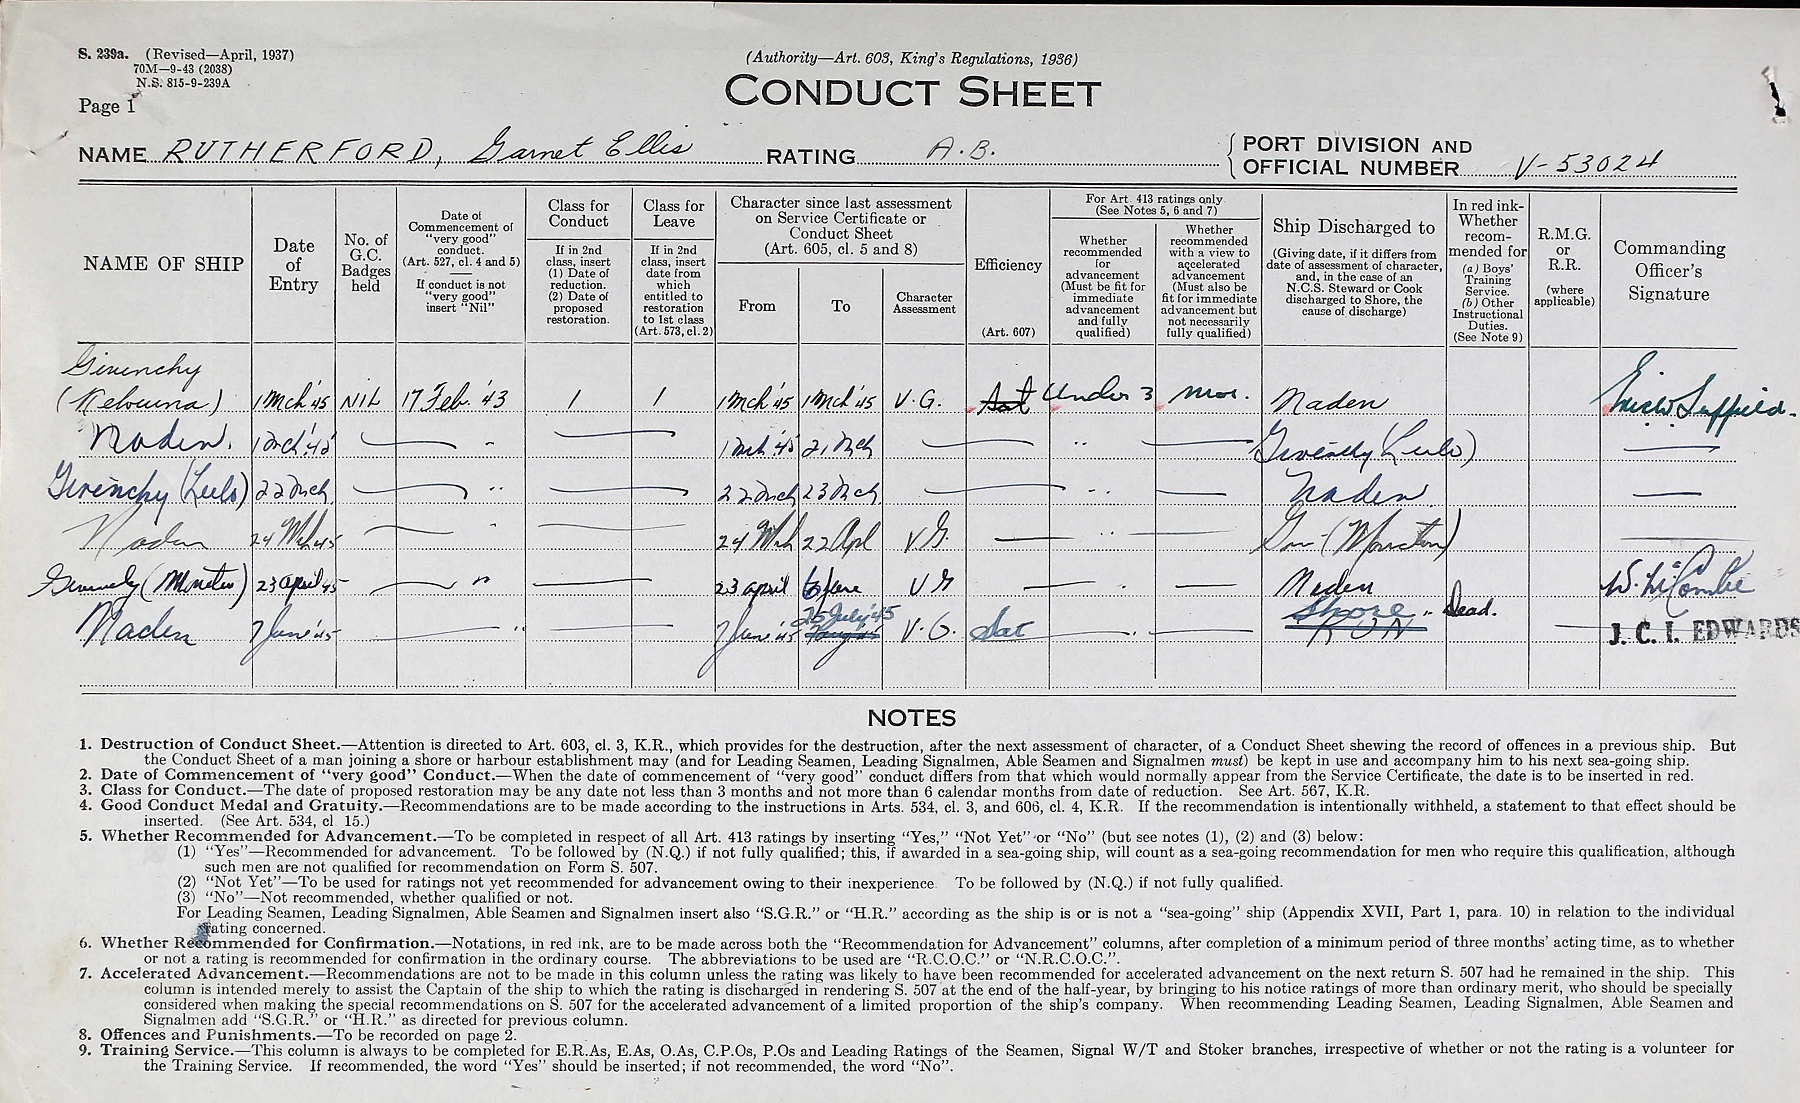 S. 239a. (Revised—April, 1937)
70M—9-43 (2038)
N.S. 815-9-239A
Page 1
(Authority—Art. 603, King's Regulations, 1936)
CONDUCT SHEET
NAME RUTHERFORD, Garnet Ellis RATING A.B. PORT DIVISION AND OFFICIAL NUMBER V-53024
NAME OF SHIP
Date of Entry
No. of G.C. Badges held
Date of Commencement of "very good" conduct. (Art. 527, cl. 4 and 5)
If conduct is not "very good" insert "Nil"
Class for Conduct
If in 2nd class, insert (1) Date of reduction. (2) Date of proposed restoration.
Class for Leave
If in 2nd class, insert date from which entitled to restoration to 1st class (Art. 573, cl. 2)
Character since last assessment on Service Certificate or Conduct Sheet (Art. 605, cl. 5 and 8)
From
To
Character Assessment
Efficiency
(Art. 607)
For Art. 413 ratings only (See Notes 5, 6 and 7)
Whether recommended for advancement (Must be fit for immediate advancement and fully qualified)
Whether recommended with a view to accelerated advancement (Must also be fit for immediate advancement but not necessarily fully qualified)
Ship Discharged to
(Giving date, if it differs from date of assessment of character, and, in the case of an N.C.S. Steward or Cook discharged to Shore, the cause of discharge)
In red ink- Whether recommended for
(a) Boys' Training Service.
(b) Other Instructional Duties.
(See Note 9)
R.M.G. or R.R. (where applicable)
Commanding Officer's Signature
Givenchy
(Kelowna) 1 Mch '45 NIL 17 Feb. '43 1 1 1 Mch '45 1 Mch '45 V.G. Sat Under 3 mos. Naden
Naden. 1 Mch '45 — " — 1 Mch '45 21 Mch — " — Givenchy
Givenchy 22 Mch — " — 22 Mch 23 Mch — " — Naden —
Naden 24 Mch 45 — " — 24 Mch 22 Apl VG — " — (Moncton) —
(Moncton) 23 April 45 — " — 23 April 6 June VG — " — Naden
Naden 7 June '45 — " — 7 June '45 25 July '45 V.G. Sat — " — Shore " Dead. — J. C. I. EDWARDS
NOTES
1. Destruction of Conduct Sheet.—Attention is directed to Art. 603, cl. 3, K.R., which provides for the destruction, after the next assessment of character, of a Conduct Sheet shewing the record of offences in a previous ship. But
the Conduct Sheet of a man joining a shore or harbour establishment may (and for Leading Seamen, Leading Signalmen, Able Seamen and Signalmen must) be kept in use and accompany him to his next sea-going ship.
2. Date of Commencement of "very good" Conduct.—When the date of commencement of "very good" conduct differs from that which would normally appear from the Service Certificate, the date is to be inserted in red.
3. Class for Conduct.—The date of proposed restoration may be any date not less than 3 months and not more than 6 calendar months from date of reduction. See Art. 567, K.R.
4. Good Conduct Medal and Gratuity.—Recommendations are to be made according to the instructions in Arts. 534, cl. 3, and 606, cl. 4, K.R. If the recommendation is intentionally withheld, a statement to that effect should be
inserted. (See Art. 534, cl 15.)
5. Whether Recommended for Advancement.—To be completed in respect of all Art. 413 ratings by inserting "Yes," "Not Yet" or "No" (but see notes (1), (2) and (3) below:
(1) "Yes"—Recommended for advancement. To be followed by (N.Q.) if not fully qualified; this, if awarded in a sea-going ship, will count as a sea-going recommendation for men who require this qualification, although
such men are not qualified for recommendation on Form S. 507.
(2) "Not Yet"—To be used for ratings not yet recommended for advancement owing to their inexperience To be followed by (N.Q.) if not fully qualified.
(3) "No"—Not recommended, whether qualified or not.
For Leading Seamen, Leading Signalmen, Able Seamen and Signalmen insert also "S.G.R." or "H.R." according as the ship is or is not a "sea-going" ship (Appendix XVII, Part 1, para. 10) in relation to the individual
rating concerned.
6. Whether Recommended for Confirmation.—Notations, in red ink, are to be made across both the "Recommendation for Advancement" columns, after completion of a minimum period of three months' acting time, as to whether
or not a rating is recommended for confirmation in the ordinary course. The abbreviations to be used are "R.C.O.C." or "N.R.C.O.C.".
7. Accelerated Advancement.—Recommendations are not to be made in this column unless the rating was likely to have been recommended for accelerated advancement on the next return S. 507 had he remained in the ship. This
column is intended merely to assist the Captain of the ship to which the rating is discharged in rendering S. 507 at the end of the half-year, by bringing to his notice ratings of more than ordinary merit, who should be specially
considered when making the special recommendations on S. 507 for the accelerated advancement of a limited proportion of the ship's company. When recommending Leading Seamen, Leading Signalmen, Able Seamen and
Signalmen add "S.G.R." or "H.R." as directed for previous column.
8. Offences and Punishments.—To be recorded on page 2.
9. Training Service.—This column is always to be completed for E.R.As, E.As, O.As, C.P.Os, P.Os and Leading Ratings of the Seamen, Signal W/T and Stoker branches, irrespective of whether or not the rating is a volunteer for
the Training Service. If recommended, the word "Yes" should be inserted; if not recommended, the word "No".